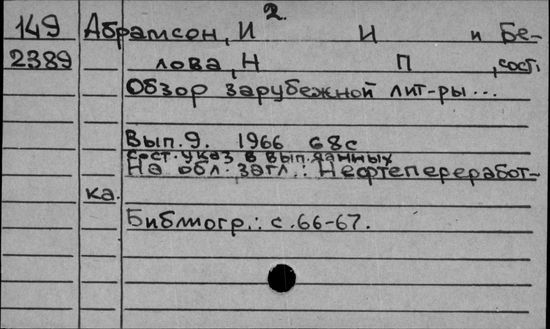 2.
149 Абрамсон, И И и Бе-
2389 лова, Н П , сост.
Обзор зарубежной лит-ры...
Вып. 9. 1966 68с
сост. указ в вып. данных
На обл. загл.: Нефтепереработ-
ка.
Библиогр.: с. 66-67.